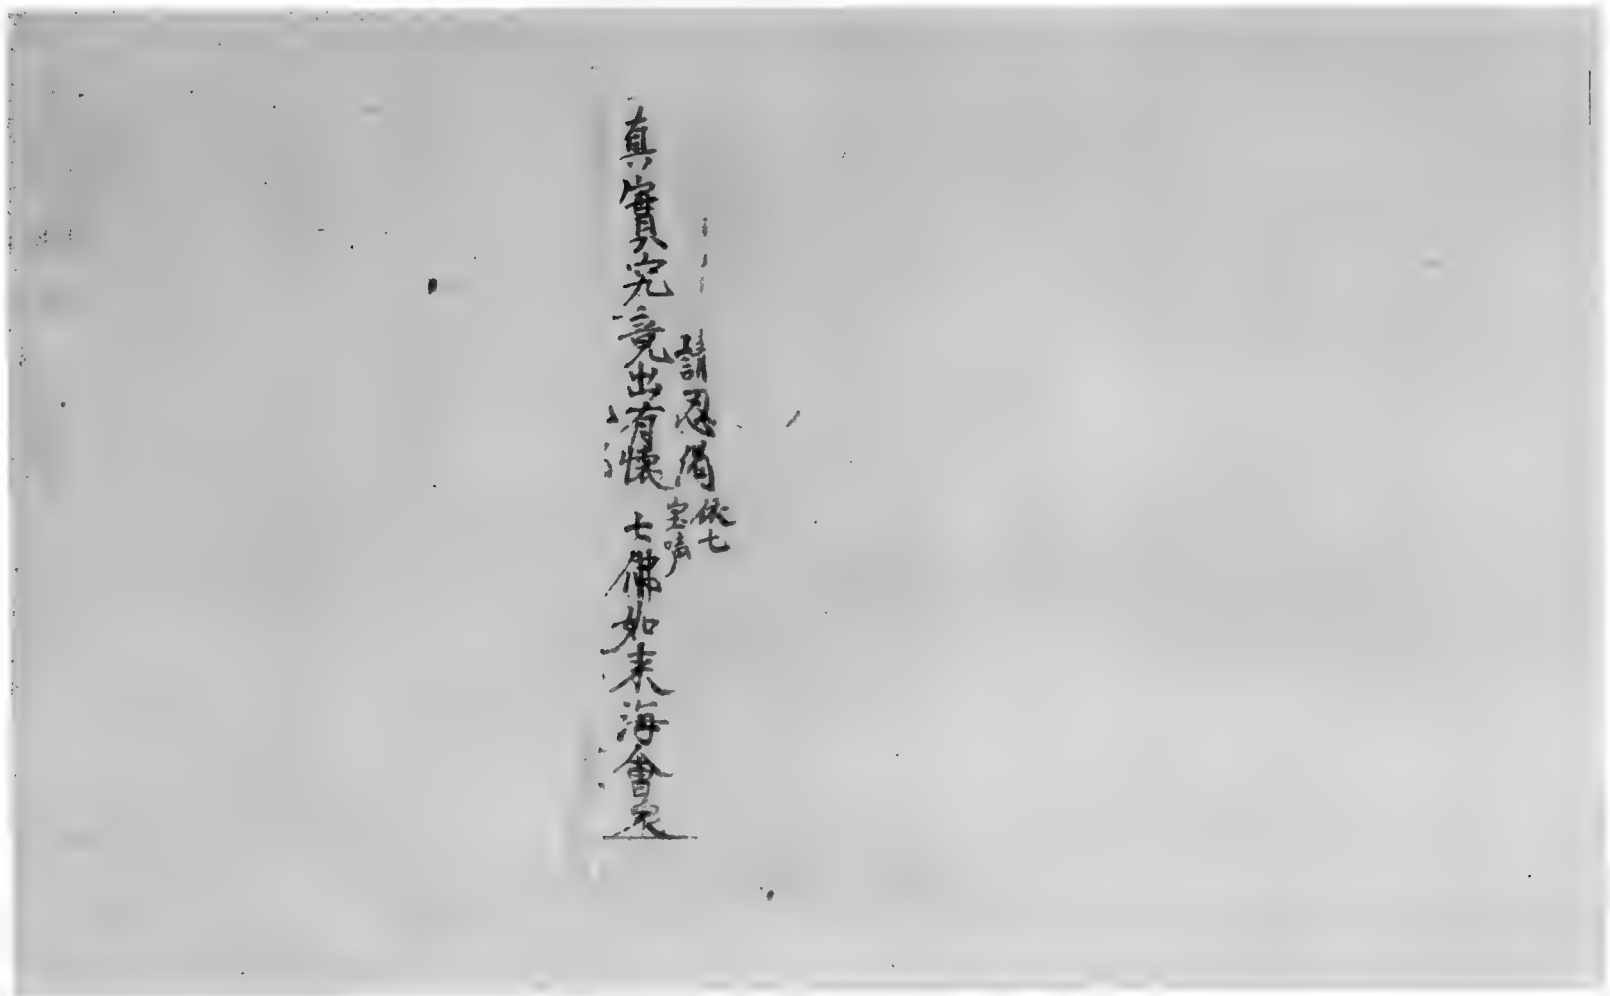 請忍偈 依七
宝嘖
真實究竟出有懐 七佛如来海會衆